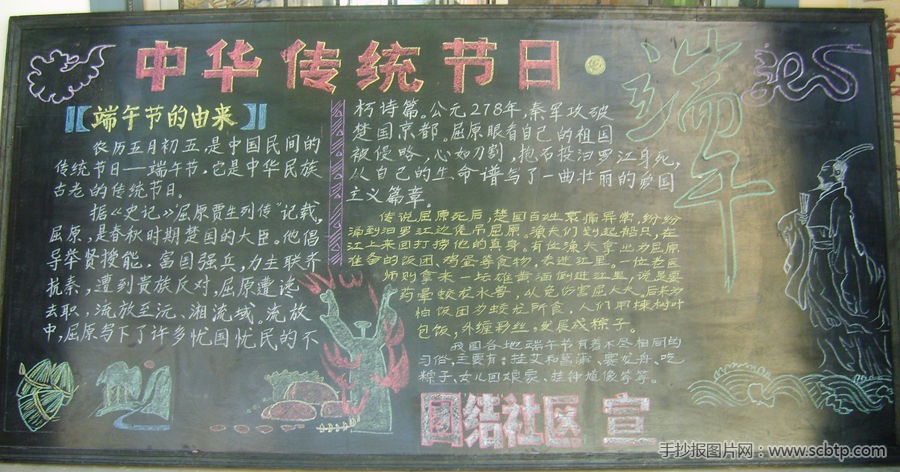 中华传统节日·
端午
端午节的由来
农历五月初五,是中国民间的
传统节日——端午节,它是中华民族
古老的传统节日。
据《史记》屈原贾生列传"记载,
屈原,是春秋时期楚国的大臣。他倡
导举贤授能,富国强兵,力主联齐
抗秦,遭到贵族反对,屈原遭谗
去职,流放至沅、湘流域。流放
中,屈原写下了许多忧国忧民的不
朽诗篇。公元278年,秦军攻破
楚国京都。屈原眼看自己的祖国
被侵略,心如刀割,抱石投汨罗江身死,
以自己的生命谱写了一曲壮丽的爱国
主义篇章。
传说屈原死后,楚国百姓哀痛异常,纷纷
涌到汨罗江边去吊屈原。渔夫们划起船只,在
江上来回打捞他的真身。有位渔夫拿出为屈原
准备的饭团、鸡蛋等食物,丢进江里。一位老医
师则拿来一坛雄黄酒倒进江里,说是要
药晕蛟龙水兽,以免伤害屈大夫。后来为
怕饭团为蛟龙所食,人们用楝树叶
包饭,外缠彩丝,发展成粽子。
我国各地端午节有着不尽相同的
习俗,主要有:挂艾和菖蒲、赛龙舟、吃
粽子、女儿回娘家、挂钟馗像等等。
团结社区 宣
手抄报图片网:www.scbtp.com